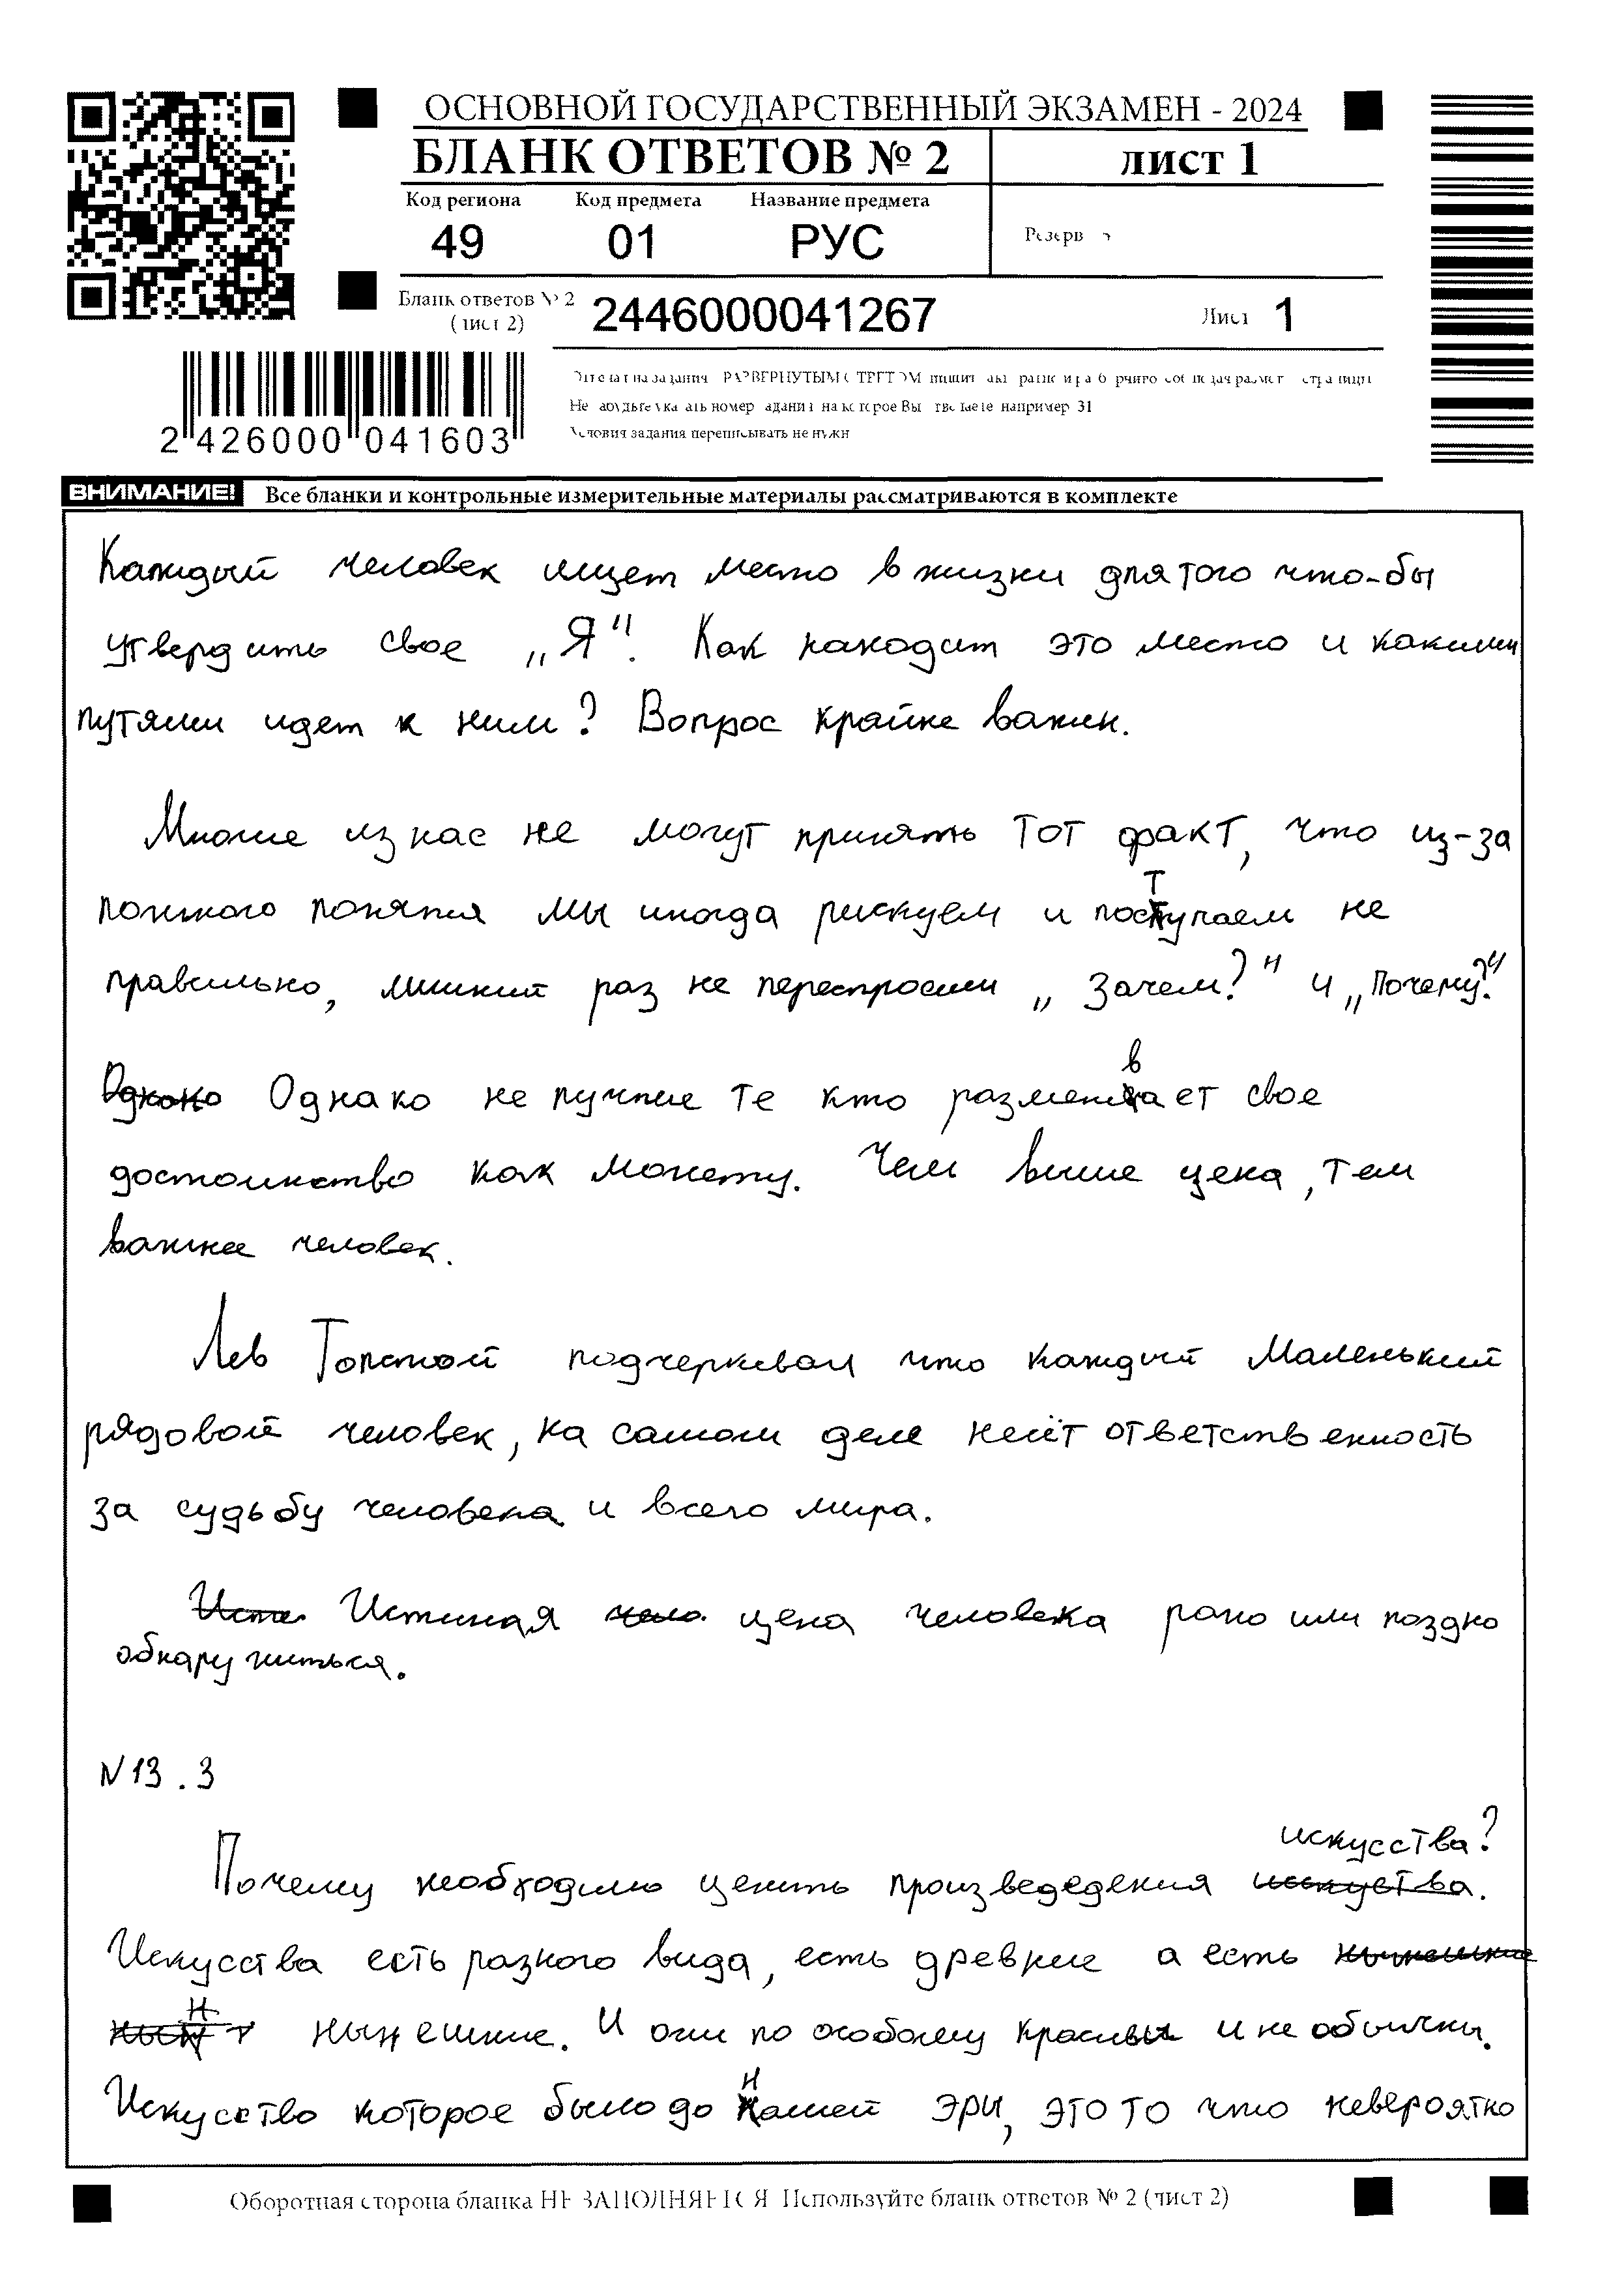 ОСНОВНОЙ ГОСУДАРСТВЕННЫЙ ЭКЗАМЕН - 2024
БЛАНК ОТВЕТОВ № 2
ЛИСТ 1
Код региона Код предмета Название предмета
49 01 РУС
Резерв
Бланк ответов № 2
(лист 2)
2446000041267
Лист 1
2 426000 041603
Условия задания переписывать не нужн
ВНИМАНИЕ! Все бланки и контрольные измерительные материалы рассматриваются в комплекте
Каждый человек ищет место в жизни для того что-бы
утвердить свое „Я". Как находит это место и какими
путями идет к ним? Вопрос крайне важен.
Многие из нас не могут принять тот факт, что из-за
ложного понятия мы иногда рискуем и поступаем не
правильно, лишний раз не переспросим „Зачем?" и „Почему?"
Однако Однако не лучшие те кто разменивает свое
достоинство как монету. Чем выше цена, тем
важнее человек.
Лев Толстой подчеркивал что каждый маленький
рядовой человек, на самом деле несёт ответственность
за судьбу человека и всего мира.
Исти Истиная чело цена человека рано или поздно
обнаружиться.
N 13.3
Почему необходимо ценить произведедения искуства. искусства?
Искусства есть разного вида, есть древние а есть
нынешние. И они по особому красивы и не обычны.
Искусство которое было до нашей эры, это то что невероятно
Оборотная сторона бланка НЕ ЗАПОЛНЯЕТСЯ Используйте бланк ответов № 2 (лист 2)